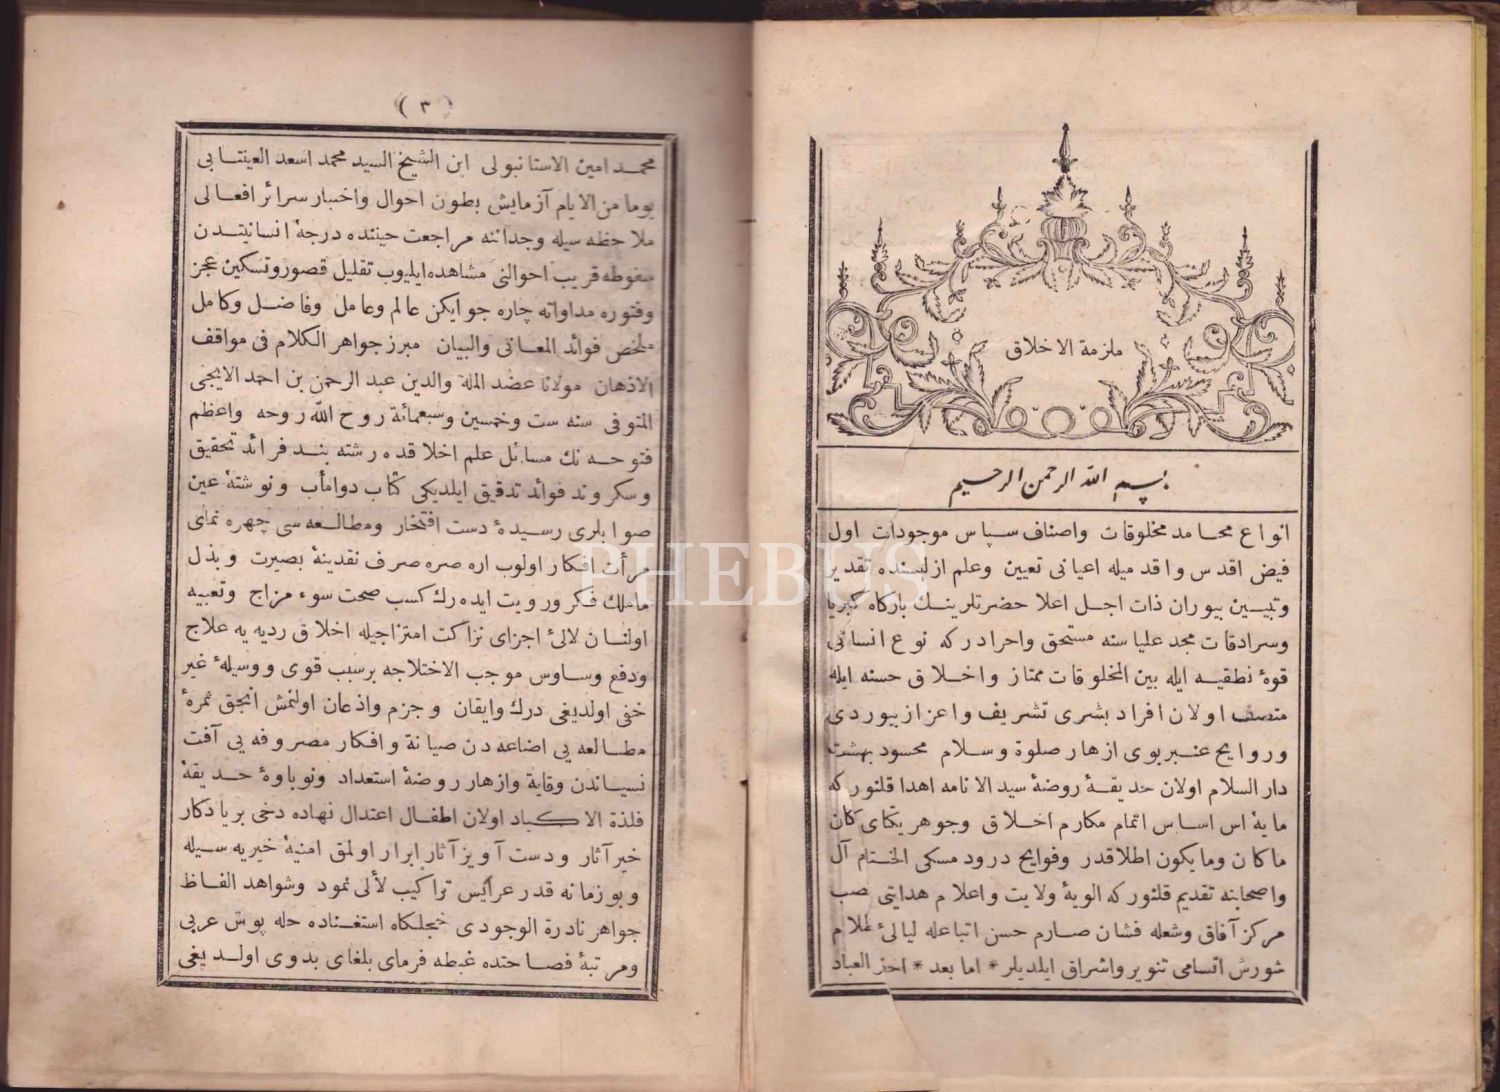 ملزمة الاخلاق
بسم الله الرحمن الرحيم
انواع محامد مخلوقات واصناف سپاس موجودات اول
فيض اقدس واقدميله اعيانى تعيين وعلم ازليسنده تقدير
وتبيين بيوران ذات اجل اعلا حضرتلرينك بارگاه كبريا
وسرادقات مجد علياسنه مستحق واحرادركه نوع انسانى
قوهٔ نطقيه ايله بين المخلوقات ممتاز واخلاق حسنه ايله
متصف اولان افراد بشرى تشريف واعزاز بيوردى
وروايح عنبربوى ازهار صلوة وسلام محسود بهشت
دار السلام اولان حديقهٔ روضهٔ سيد الانامه اهدا قلنوركه
مايهٔ اس اساس اتمام مكارم اخلاق وجوهر يكتاى كان
ماكان ومايكون اطلاقدر وفوايح درود مسكى الختام آل
واصحابنه تقديم قلنوركه الويهٔ ولايت واعلام هدايتى صب
مركز آفاق وشعله فشان صارم حسن اتباعله ليالئ ظلام
شورش اتسامى تنوير واشراق ايلديلر * اما بعد * احقر العباد
(٣)
محمد امين الاستانبولى ابن الشيخ السيد محمد اسعد العينتابى
يوما من الايام آزمايش بطون احوال واخبار سرائر افعالى
ملاحظه سيله وجداننه مراجعت حيننده درجهٔ انسانيتدن
سقوطه قريب احوالنى مشاهده ايليوب تقليل قصور وتسكين عجز
وفتوره مداواته چاره جو ايكن عالم وعامل وفاضل وكامل
ملخص فوائد المعانى والبيان مبرز جواهر الكلام فى مواقف
الاذهان مولانا عضد الملة والدين عبد الرحمن بن احمد الايجى
المتوفى سنه ست وخمسين وسبعمائة روح الله روحه واعظم
فتوحه نك مسائل علم اخلاقده رشته بند فرائد تحقيق
وسكروند فوائد تدقيق ايلديكى كتاب دوامأب ونوشتهٔ عين
صوابلرى رسيدهٔ دست افتخار ومطالعه سى چهره نماى
مرأت افكار اولوب اره صره صرف نقدينهٔ بصيرت وبذل
ماملك فكر ورويت ايده رك كسب صحت سوء مزاج وتعبيه
اولنان لالئ اجزاى نزاكت امتزاجيله اخلاق رديه يه علاج
ودفع وساوس موجب الاختلاجه برسبب قوى ووسيلهٔ غير
خفى اولديغى درك وايقان وجزم واذعان اولنمش انجق ثمرهٔ
مطالعه يى اضاعه دن صيانة وافكار مصروفه يى آفت
نسياندن وقاية وازهار روضهٔ استعداد ونوباوهٔ حديقهٔ
فلذة الاكباد اولان اطفال اعتدال نهاده دخى بر يادكار
خير آثار ودست آويز آثار ابرار اولمق امنيهٔ خيريه سيله
وبو زمانه قدر عرايس تراكيب لألى نمود وشواهد الفاظ
جواهر نادرة الوجودى خجلكاه استغناده حله پوش عربى
ومرتبهٔ فصاحتده غبطه فرماى بلغاى بدوى اولديغى